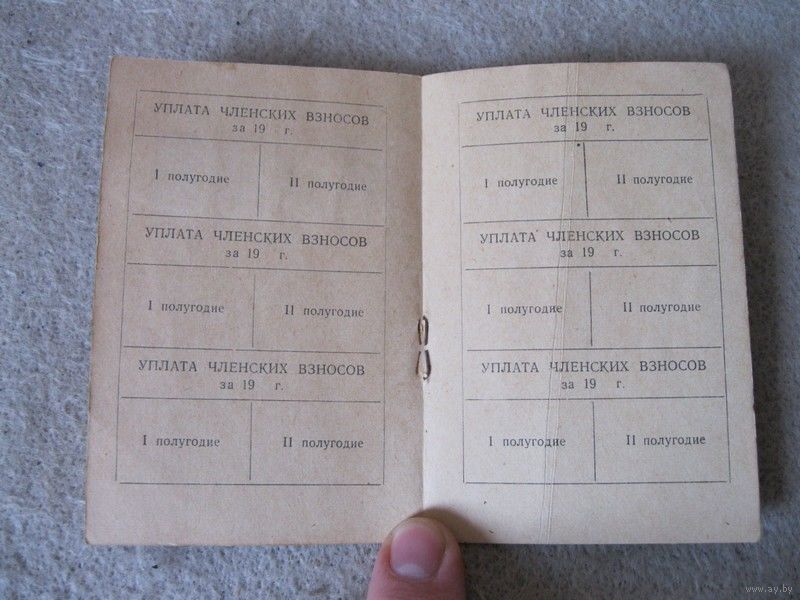 УПЛАТА ЧЛЕНСКИХ ВЗНОСОВ
за 19 г.
I полугодие
II полугодие
УПЛАТА ЧЛЕНСКИХ ВЗНОСОВ
за 19 г.
I полугодие
II полугодие
УПЛАТА ЧЛЕНСКИХ ВЗНОСОВ
за 19 г.
I полугодие
II полугодие
УПЛАТА ЧЛЕНСКИХ ВЗНОСОВ
за 19 г.
I полугодие
II полугодие
УПЛАТА ЧЛЕНСКИХ ВЗНОСОВ
за 19 г.
I полугодие
II полугодие
УПЛАТА ЧЛЕНСКИХ ВЗНОСОВ
за 19 г.
I полугодие
II полугодие
www.ay.by